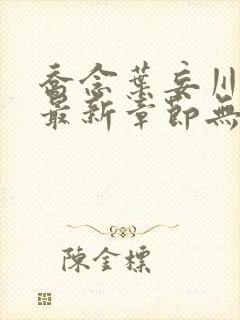 喬念葉妄川
最新章節無
陳金標